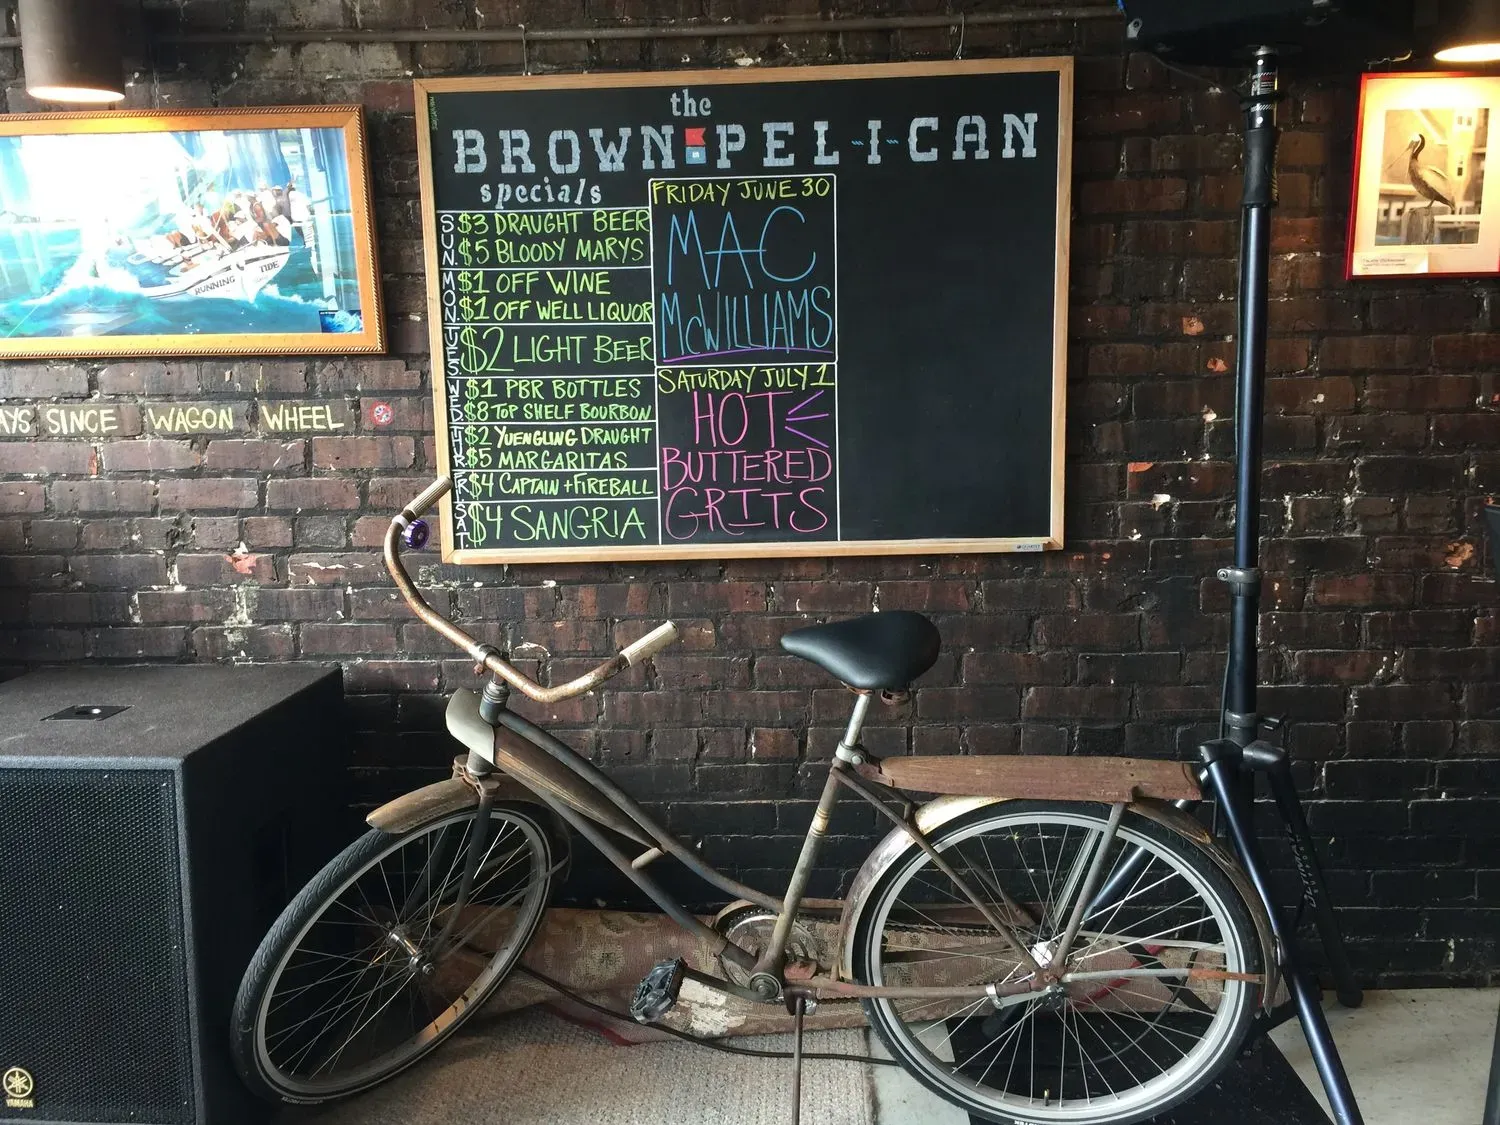 the
BROWN PEL-I-CAN
specials
SUN.
$3 DRAUGHT BEER
$5 BLOODY MARYS
MON.
$1 OFF WINE
$1 OFF WELL LIQUOR
TUES
$2 LIGHT BEER
WED
$1 PBR BOTTLES
$8 TOP SHELF BOURBON
THUR
$2 YUENGLING DRAUGHT
$5 MARGARITAS
FR.
$4 CAPTAIN + FIREBALL
SAT.
$4 SANGRIA
FRIDAY JUNE 30
MAC
McWILLIAMS
SATURDAY JULY 1
HOT
BUTTERED
GRITS
RUNNING TIDE
AYS SINCE WAGON WHEEL
YAMAHA